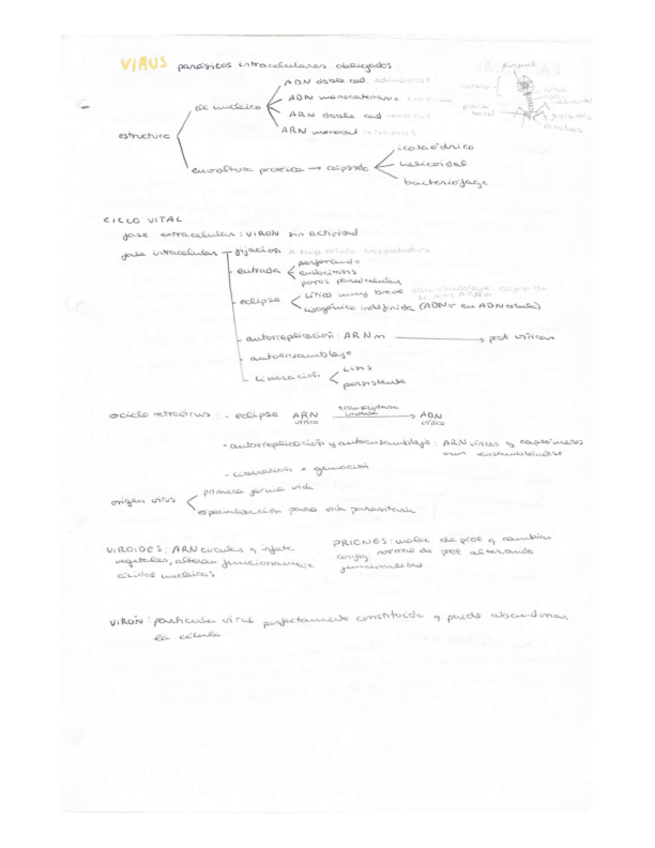 VIRUS parásitos intracelulares obligados
ADN doble cad adenovirus
ác nucleico
ADN monocatenario
ARN doble cad
ARN monocat retrovirus
estructura
envoltura proteica → cápside
icosaédrico
helicoidal
bacteriófago
placa basal
CICLO VITAL
fase extracelular: VIRON sin actividad
fase intracelular
fijación
- entrada
perforando
endocitosis
poros paracelular
- eclipse
lítico muy breve
lisogénico indefinida (ADNv en ADN célula)
- autorreplicación: ARNm → prot víricas
- autoensamblaje
- liberación
lisis
persistente
ciclo retrovirus: - eclipse ARN vírico transcriptasa inversa → ADN vírico
- autorreplicación y autoensamblaje: ARN víricos y capsómeros
van ensamblándose
- liberación = gemación
origen virus
primera forma vida
especialización para vida parasitaria
VIROIDES: ARN circular q infecta
vegetales, alteran
ácidos nucleicos
PRIONES: moléc de prot q cambian
config normal de prot alterando
funcionalidad
VIRÓN: partícula viral perfectamente constituida q puede abandonar
la célula